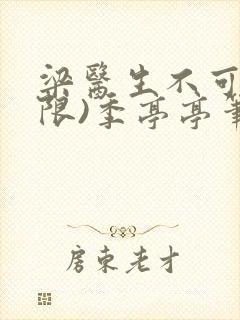 梁醫生不可
限)季亭亭筆
房东老才